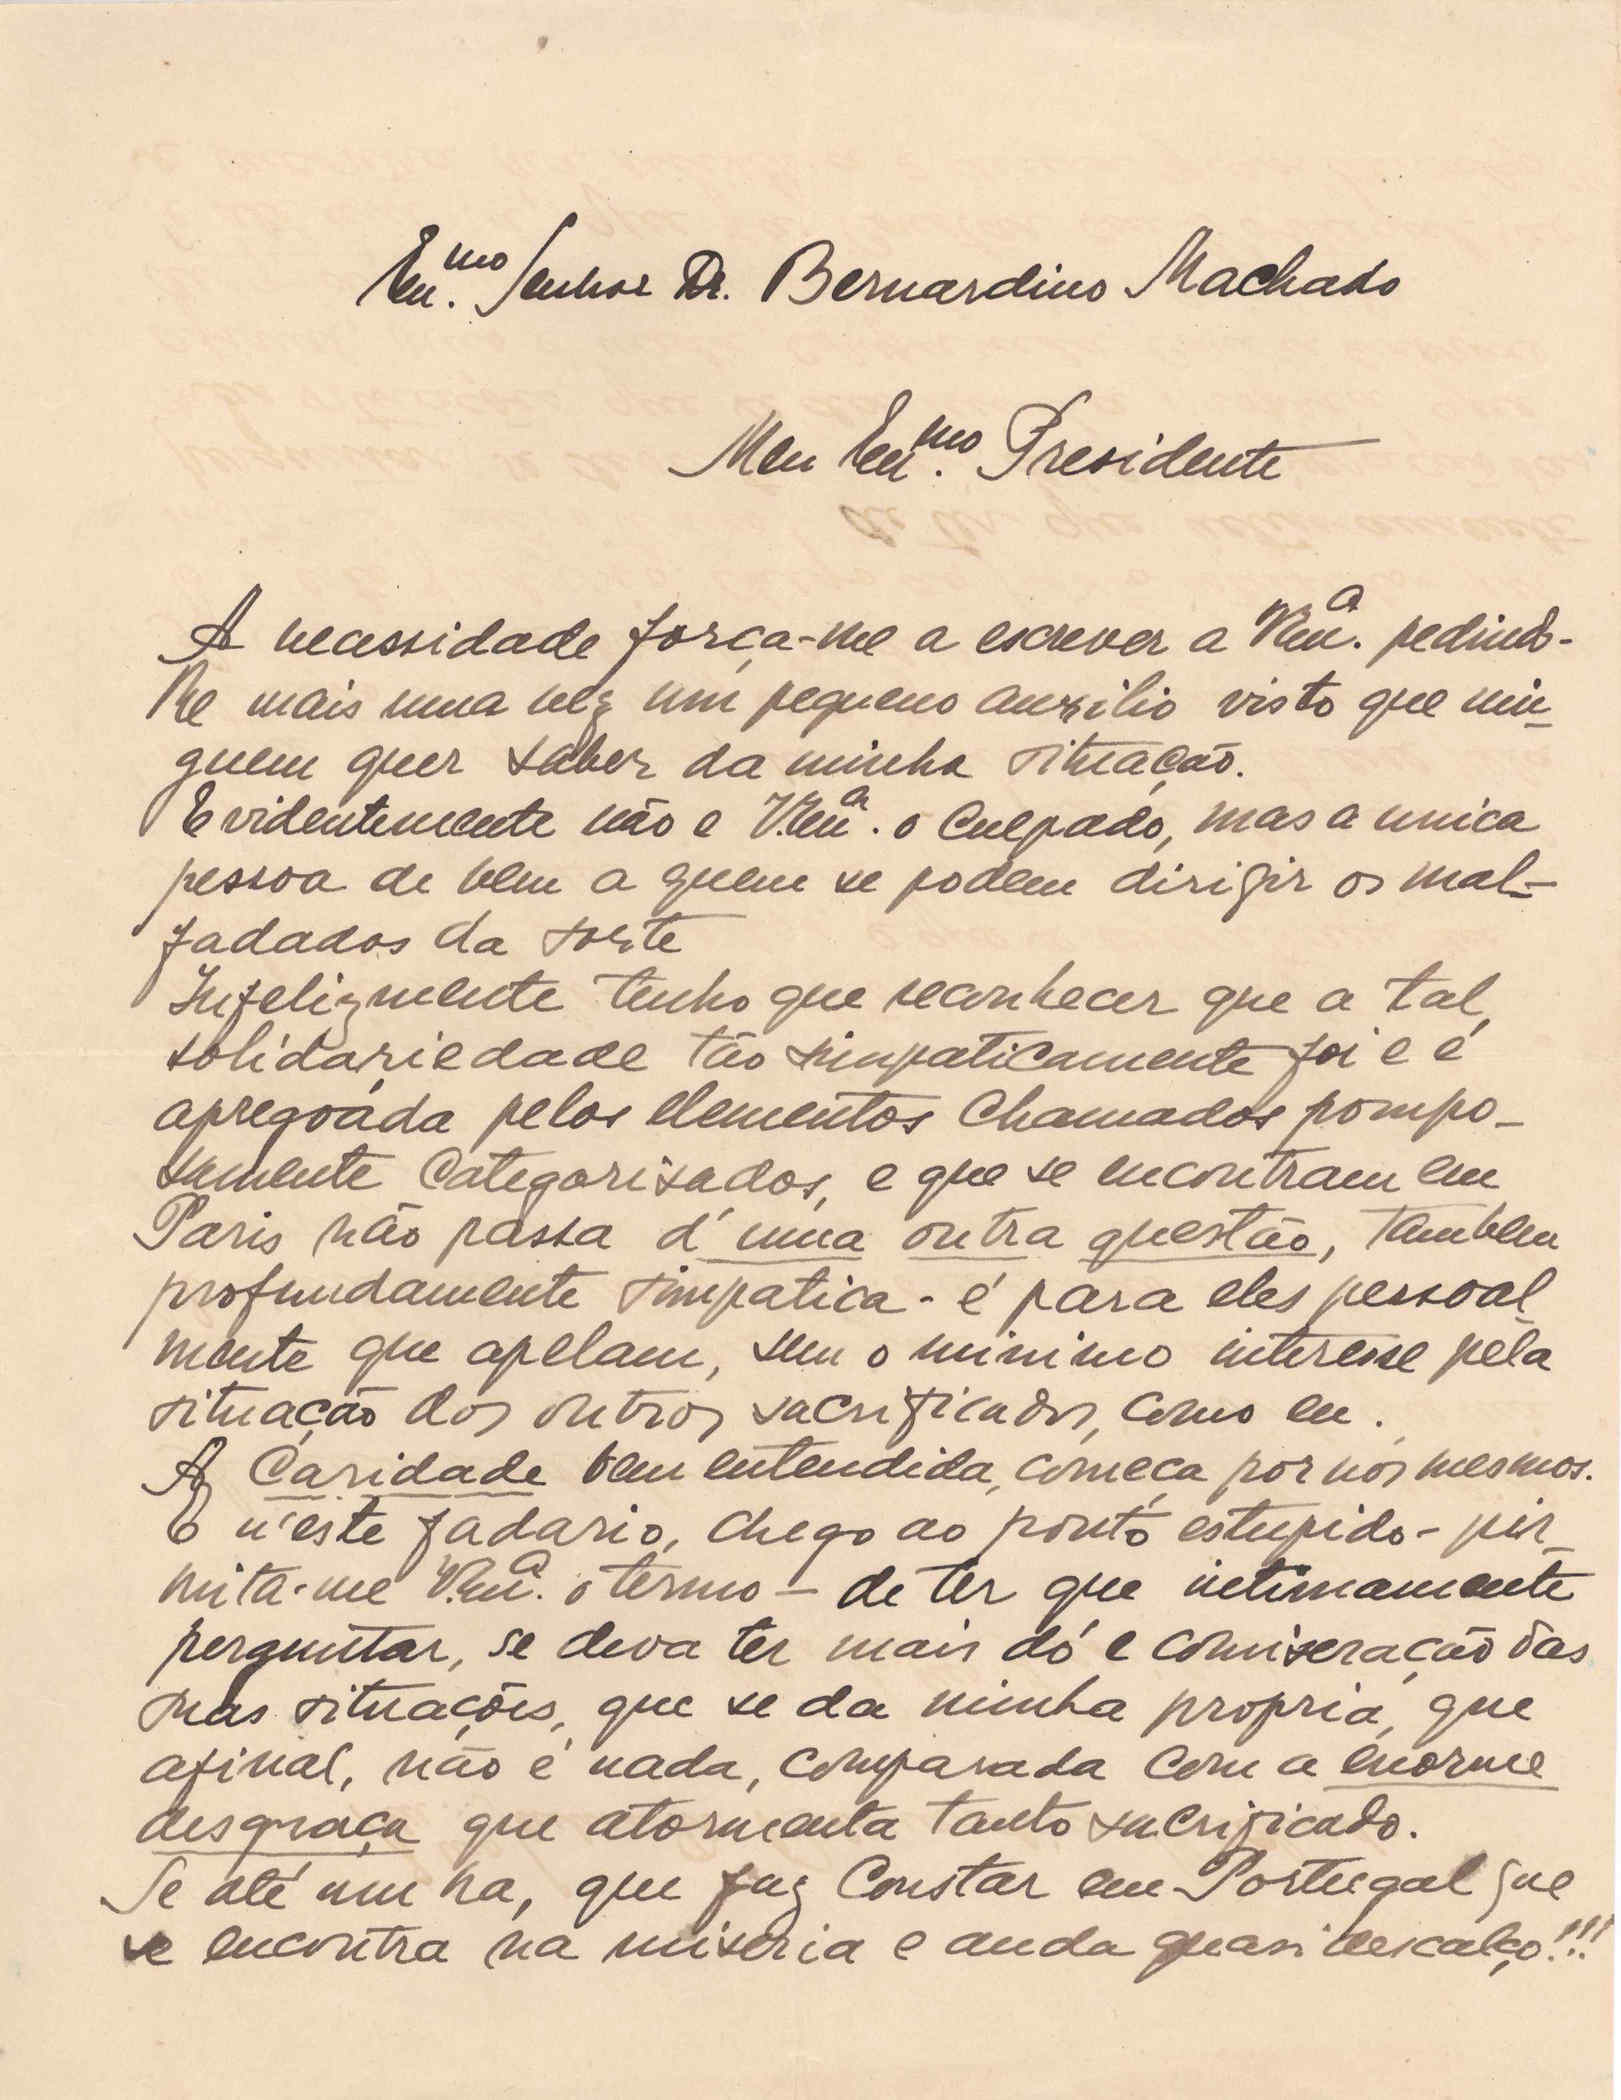 Exmo. Senhor Dr. Bernardino Machado
Meu Exmo. Presidente
A necessidade força-me a escrever a V.Exa. pedindo-
lhe mais uma vez um pequeno auxilio visto que nin-
guem quer saber da minha situação.
Evidentemente não e V.Exa. o culpado, mas a unica
pessoa de bem a quem se podem dirigir os mal-
fadados da sorte
Infelizmente tenho que reconhecer que a tal
solidariedade tão simpaticamente foi e é
apregoáda pelos elementos chamados pompo-
samente categorisados, e que se encontram em
Paris não passa d'uma outra questão, tambem
profundamente simpatica - é para eles pessoal
mente que apelam, sem o minimo interesse pela
situação dos outros sacrificados, como eu.
A Caridade bem entendida, começa por nós mesmos.
E n'este fadario, chego ao ponto estupido - per-
mita-me V.Exa. o termo - de ter que intimamente
perguntar, se deva ter mais dó e comiseração das
suas situações, que se da minha propria, que
afinal, não é nada, comparada com a enorme
desgraça que atormenta tanto sacrificado.
Se até um ha, que faz constar em Portugal que
se encontra na miseria e anda quasi descalço!!!